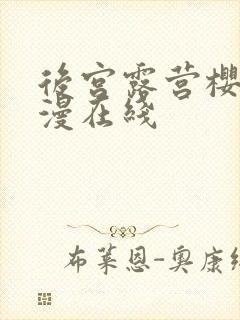 後宫露营樱
漫在线
布莱恩-奥康纳